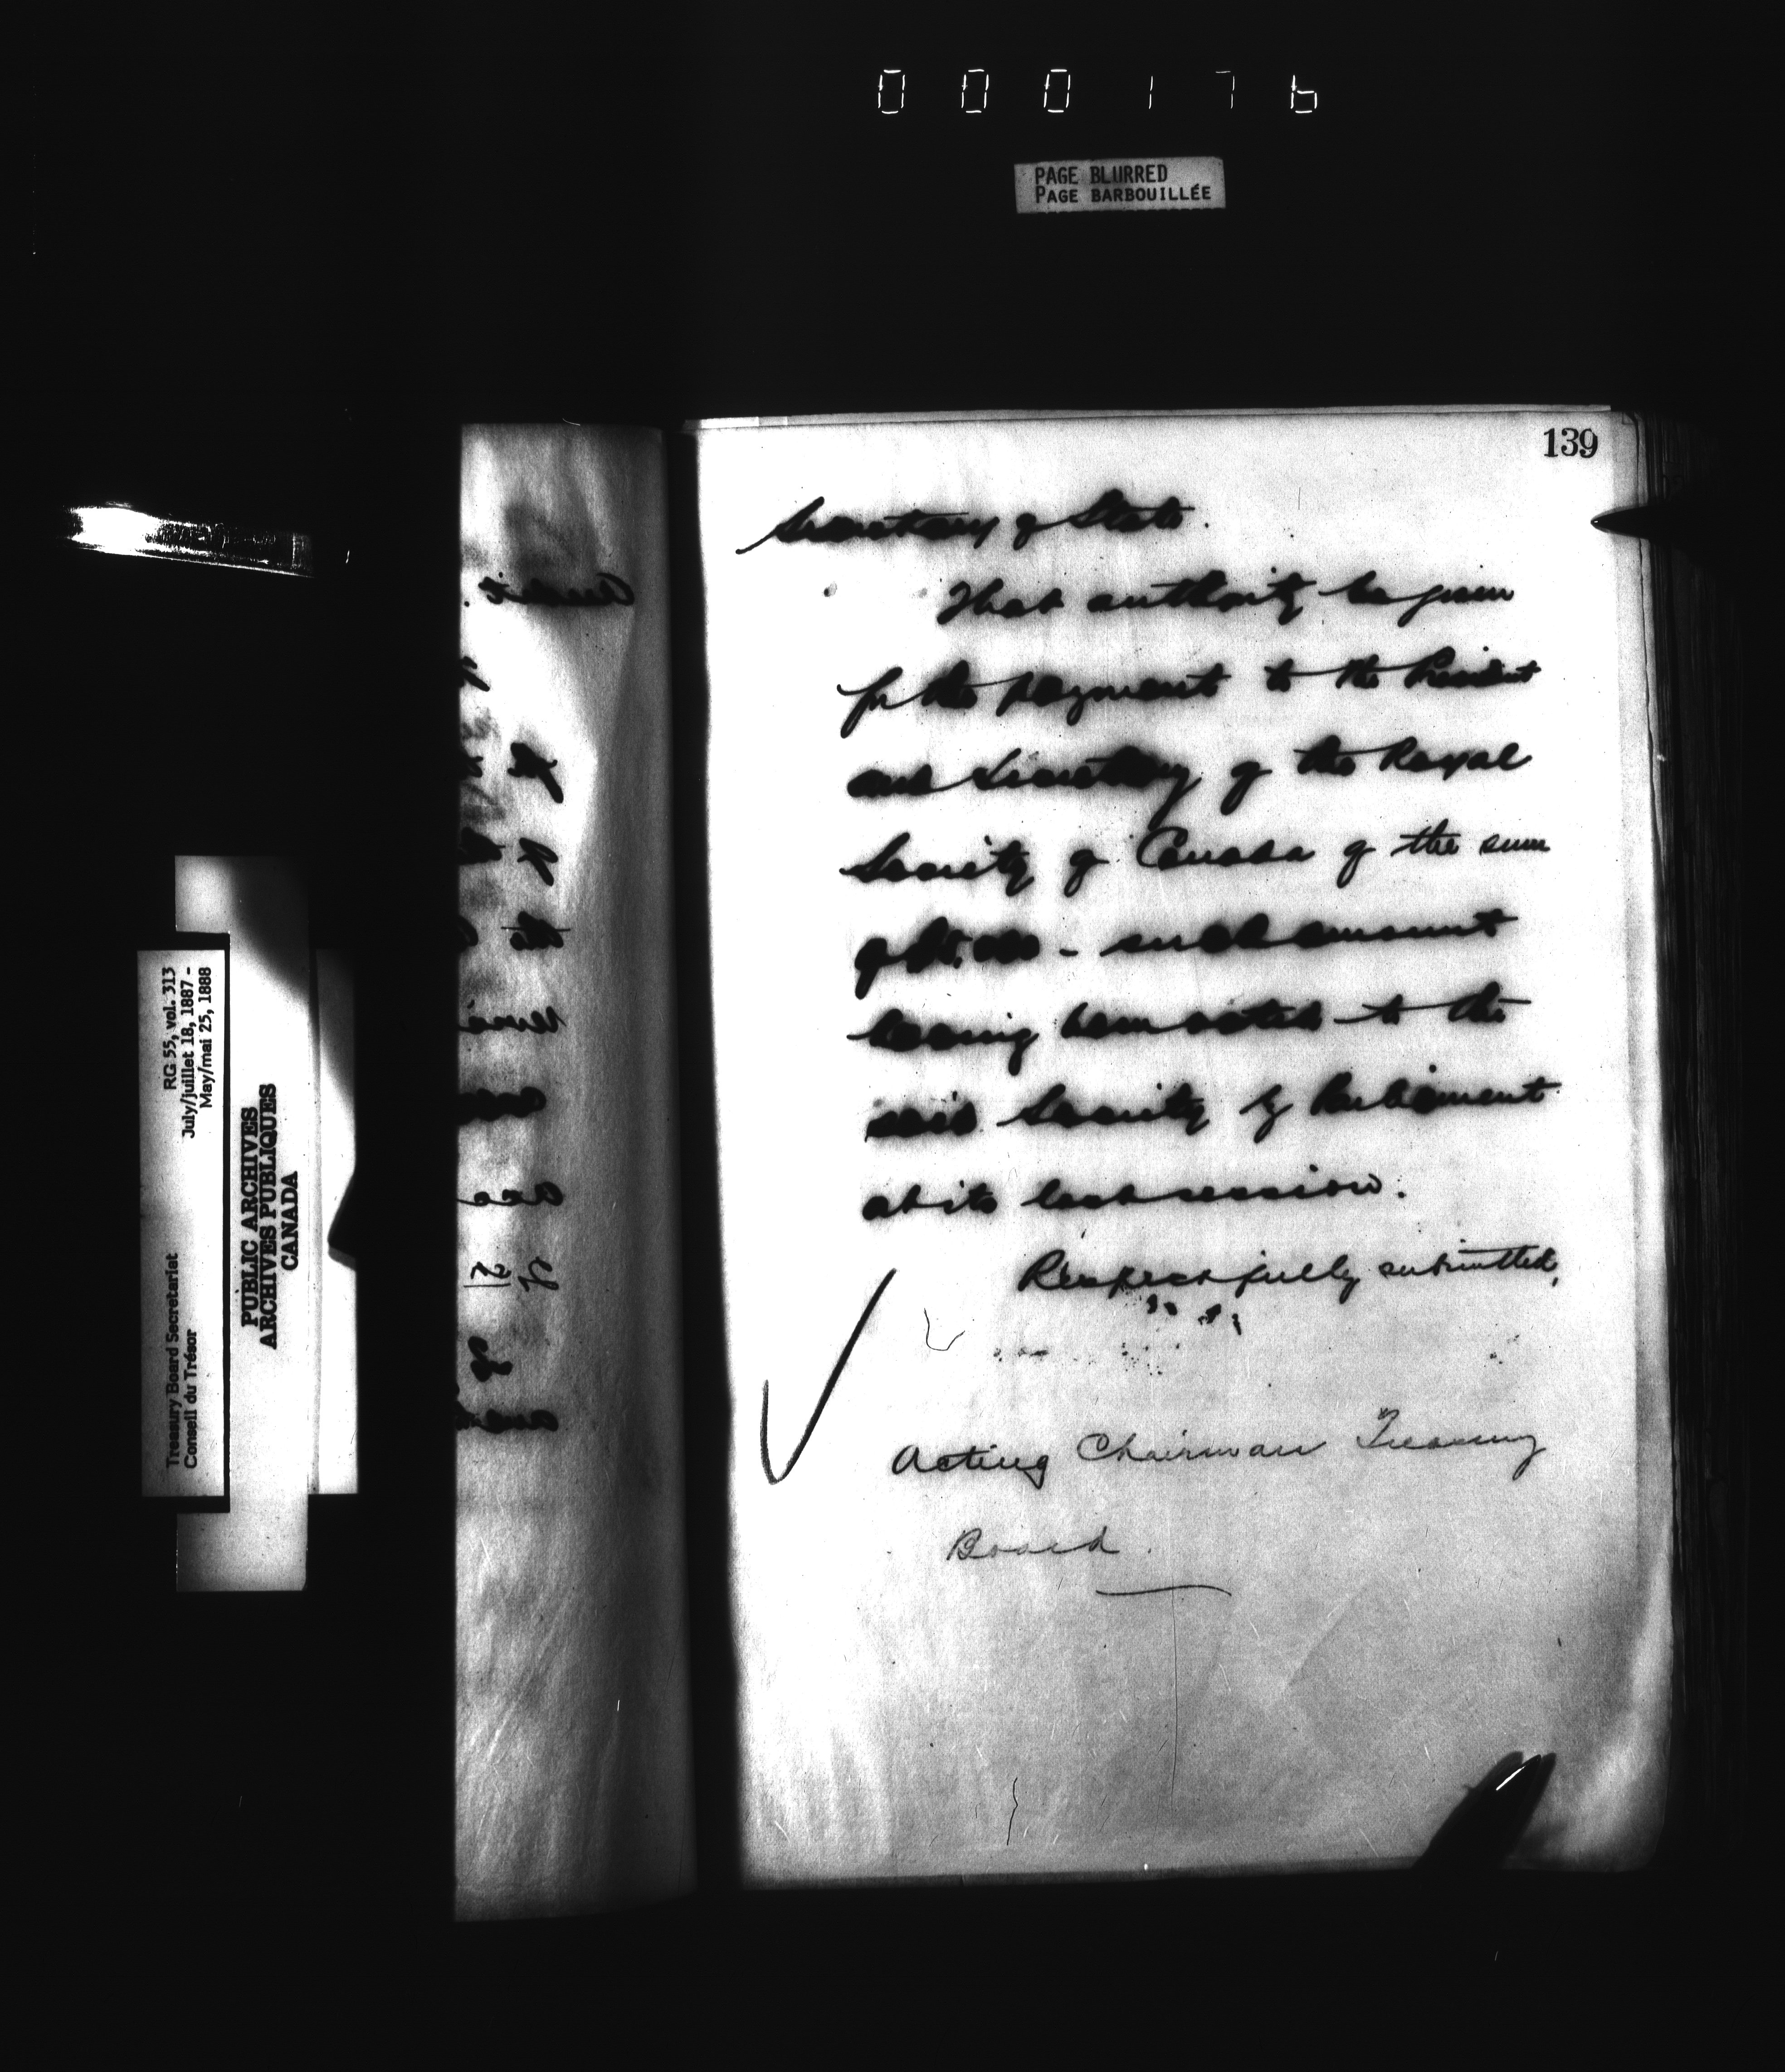 000176
PAGE BLURRED
PAGE BARBOUILLÉE
139
Secretary of State.
That authority be given
for the payment to the President
and Secretary of the Royal
Society of Canada of the sum
of - such amount
having been voted to the
said Society by Parliament
at its last session.
Respectfully submitted,
Acting Chairman Treasury
Board.
Audit.
RG 55, vol. 313
July/juillet 18, 1887 -
May/mai 25, 1888
Treasury Board Secretariat
Conseil du Trésor
PUBLIC ARCHIVES
ARCHIVES PUBLIQUES
CANADA